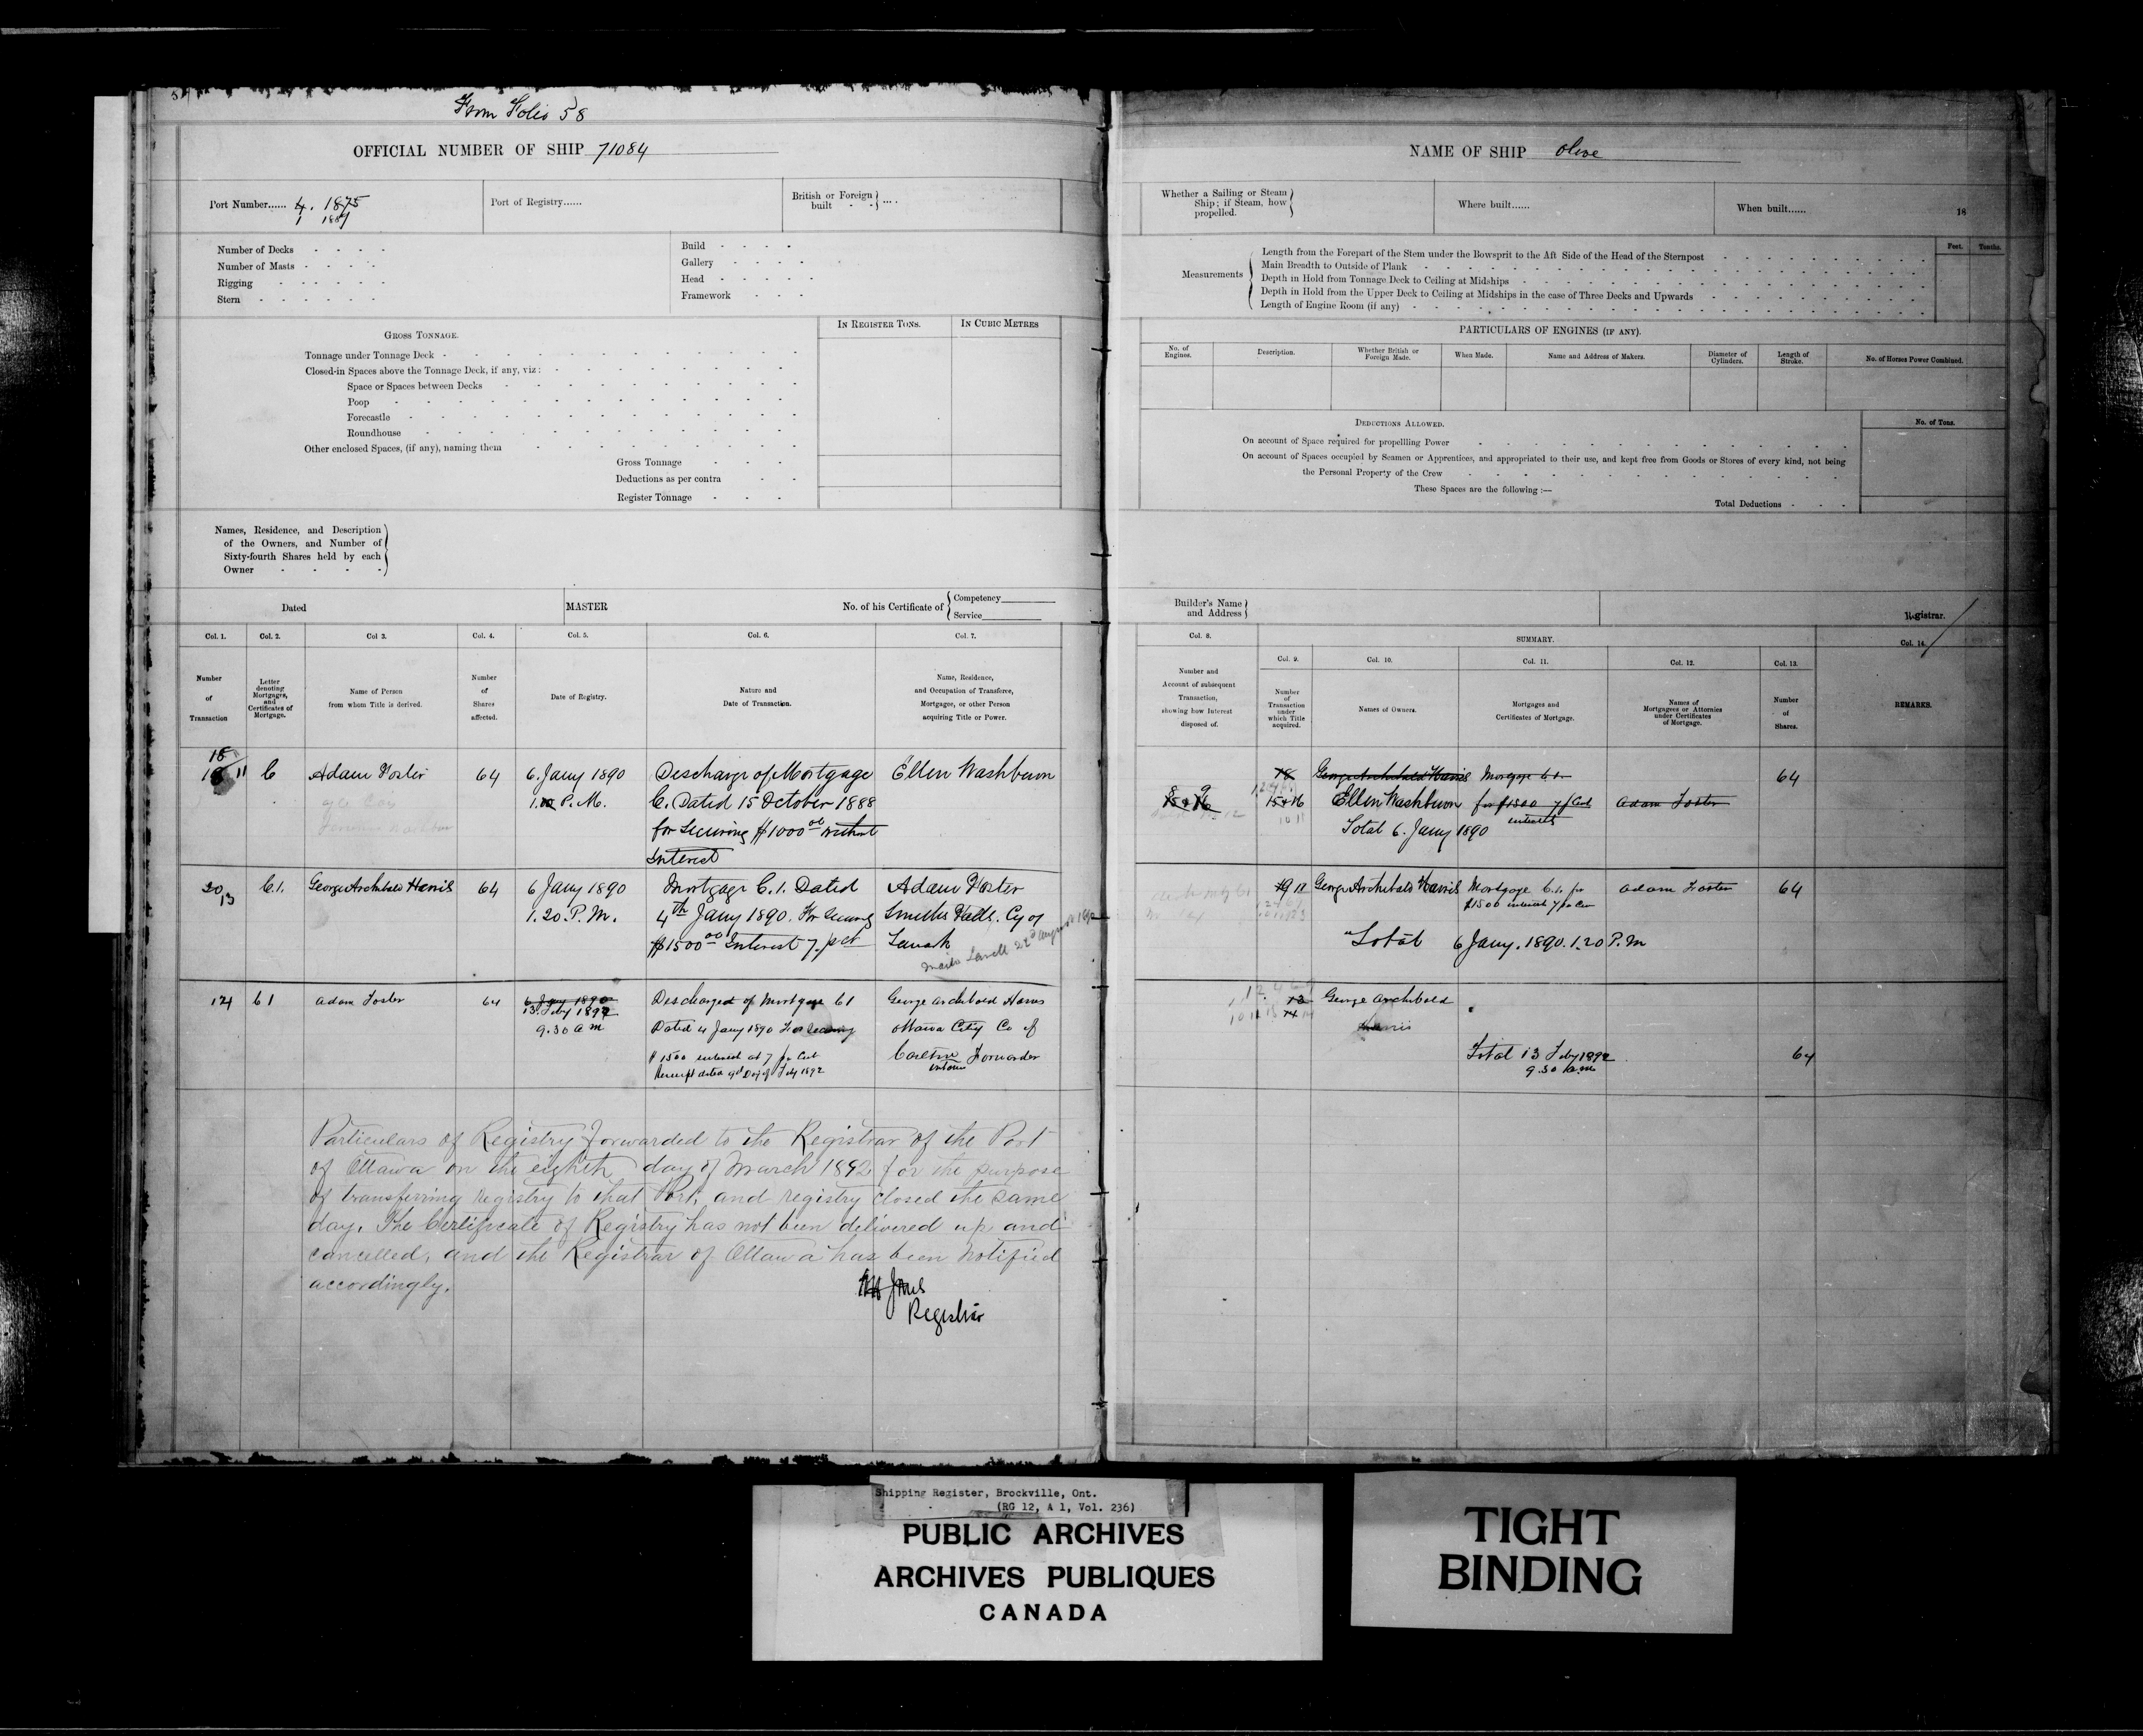 From Folio 58
OFFICIAL NUMBER OF SHIP 71084
Port Number...... 4. 1875
1 1889
Port of Registry......
British or Foreign built - - } ....
Number of Decks - - - -
Number of Masts - - - -
Rigging - - - - -
Stern - - - - - -
Build - - - -
Gallery - - - -
Head - - - - -
Framework - - -
GROSS TONNAGE.
IN REGISTER TONS.
IN CUBIC METRES
Tonnage under Tonnage Deck
Closed-in Spaces above the Tonnage Deck, if any, viz:
Space or Spaces between Decks
Poop
Forecastle
Roundhouse
Other enclosed Spaces, (if any), naming them
Gross Tonnage
Deductions as per contra
Register Tonnage
Names, Residence, and Description
of the Owners, and Number of
Sixty-fourth Shares held by each
Owner
Dated
MASTER
No. of his Certificate of
Competency
Service
Col. 1.
Col. 2.
Col 3.
Col. 4.
Col. 5.
Col. 6.
Col. 7.
Number
of
Transaction
Letter
denoting
Mortgages,
and
Certificates of
Mortgage.
Name of Person
from whom Title is derived.
Number
of
Shares
affected.
Date of Registry.
Nature and
Date of Transaction.
Name, Residence,
and Occupation of Transferee,
Mortgagee, or other Person
acquiring Title or Power.
11
C
Adam Foster
64
6. Jany 1890
1. P.M.
Discharge of Mortgage
C. Dated 15 October 1888
for Securing $1000 00 without
Interest
Ellen Washburn
20
13
C.1.
George Archibald Harris
64
6 Jany 1890
1.20. P.M.
Mortgage C.1. Dated
4th Jany 1890. For Securing
$1500 00 Interest 7. p ct
Adam Foster
Smiths Falls. Cy of
Lanark
14
C1
Adam Foster
64
6 Jany 1890
13 Feby 1892
9.30 am
Discharged of Mortgage C1
Dated 4 Jany 1890 For Securing
$1500 interest at 7 per Cent
Receipt dated Day of Feby 1892
George Archibald Harris
Ottawa City Co of
Carleton Forwarder
Ontario
Particulars of Registry forwarded to the Registrar of the Port
of Ottawa on the eighth day of March 1892 for the purpose
of transferring Registry to that Port, and registry closed the same
day. The Certificate of Registry has not been delivered up and
cancelled, and the Registrar of Ottawa has been notified
accordingly.
Jones
Registrar
NAME OF SHIP Olive
Whether a Sailing or Steam
Ship; if Steam, how
propelled.
Where built......
When built......
18
Measurements
Length from the Forepart of the Stem under the Bowsprit to the Aft Side of the Head of the Sternpost
Main Breadth to Outside of Plank
Depth in Hold from Tonnage Deck to Ceiling at Midships
Depth in Hold from the Upper Deck to Ceiling at Midships in the case of Three Decks and Upwards
Length of Engine Room (if any)
Feet.
Tenths.
PARTICULARS OF ENGINES (IF ANY).
No. of
Engines.
Description.
Whether British or
Foreign Made.
When Made.
Name and Address of Makers.
Diameter of
Cylinders.
Length of
Stroke.
No. of Horses Power Combined.
DEDUCTIONS ALLOWED.
No. of Tons.
On account of Space required for propellling Power
On account of Spaces occupied by Seamen or Apprentices, and appropriated to their use, and kept free from Goods or Stores of every kind, not being
the Personal Property of the Crew
These Spaces are the following :—
Total Deductions
Builder's Name
and Address
Registrar.
Col. 8.
SUMMARY.
Col. 14.
Col. 9.
Col. 10.
Col. 11.
Col. 12.
Col. 13.
Number and
Account of subsequent
Transaction,
showing how Interest
disposed of.
Number
of
Transaction
under
which Title
acquired.
Names of Owners.
Mortgages and
Certificates of Mortgage.
Names of
Mortgagees or Attornies
under Certificates
of Mortgage.
Number
of
Shares.
REMARKS.
8 9
15 & 16
18
George Archibald Harris
Mortgage C.1.
64
15 & 16
Ellen Washburn
for $1500 7 p Cent
interest
Adam Foster
Total 6. Jany 1890
19 11
George Archibald Harris
Mortgage C.1. for
$1500 interest 7 p Cen
Adam Foster
64
Total 6 Jany. 1890. 1.20 P.M
12
14
George Archibald
Harris
Total 13 Feby 1892
9.30 a.m
64
Shipping Register, Brockville, Ont.
(RG 12, A 1, Vol. 236)
PUBLIC ARCHIVES
ARCHIVES PUBLIQUES
CANADA
TIGHT
BINDING